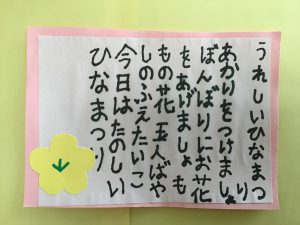 うれしいひなまつり
あかりをつけましょ
ぼんぼりにお花
をあげましょ も
もの花 五人ばや
しのふえたいこ
今日はたのしい
ひなまつり